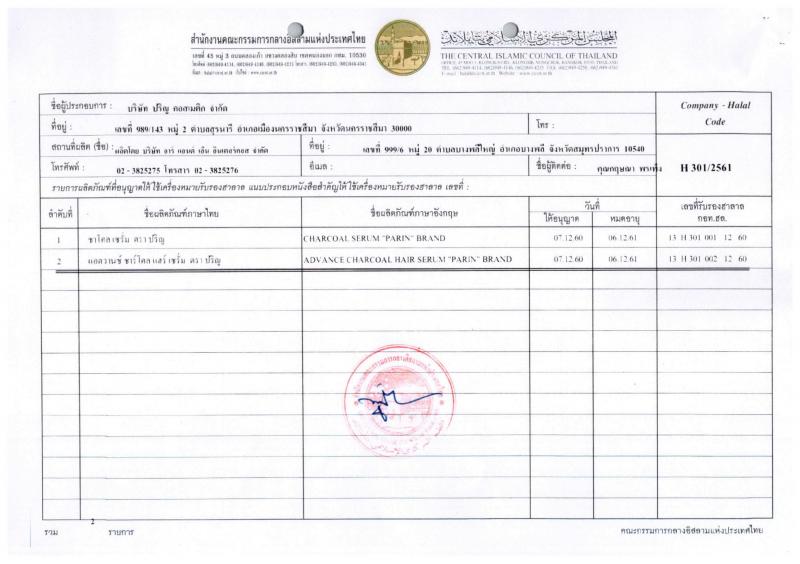 สำนักงานคณะกรรมการกลางอิสลามแห่งประเทศไทย
เลขที่ 45 หมู่ 3 ถนนคลองเก้า แขวงคลองสิบ เขตหนองจอก กทม. 10530
THE CENTRAL ISLAMIC COUNCIL OF THAILAND
ชื่อผู้ประกอบการ : บริษัท ปริญ คอสเมติก จำกัด
Company - Halal
Code
ที่อยู่ : เลขที่ 989/143 หมู่ 2 ตำบลสุรนารี อำเภอเมืองนครราชสีมา จังหวัดนครราชสีมา 30000
โทร :
สถานที่ผลิต (ชื่อ) : ผลิตโดย บริษัท อาร์ แอนด์ เอ็น อินเตอร์คอส จำกัด
ที่อยู่ : เลขที่ 999/6 หมู่ 20 ตำบลบางพลีใหญ่ อำเภอบางพลี จังหวัดสมุทรปราการ 10540
โทรศัพท์ : 02 - 3825275 โทรสาร 02 - 3825276
อีเมล :
ชื่อผู้ติดต่อ : คุณกฤษณา
H 301/2561
รายการผลิตภัณฑ์ที่อนุญาตให้ใช้เครื่องหมายรับรองฮาลาล แนบประกอบหนังสือสำคัญให้ใช้เครื่องหมายรับรองฮาลาล เลขที่ :
ลำดับที่ ชื่อผลิตภัณฑ์ภาษาไทย ชื่อผลิตภัณฑ์ภาษาอังกฤษ วันที่ เลขที่รับรองฮาลาล
ให้อนุญาต หมดอายุ กอท.ฮล.
1 ชาโคล เซรั่ม ตรา ปริญ CHARCOAL SERUM "PARIN" BRAND 07.12.60 06.12.61 13 H 301 001 12 60
2 แอดวานซ์ ชาร์โคล แฮร์ เซรั่ม ตรา ปริญ ADVANCE CHARCOAL HAIR SERUM "PARIN" BRAND 07.12.60 06.12.61 13 H 301 002 12 60
รวม 2 รายการ
คณะกรรมการกลางอิสลามแห่งประเทศไทย